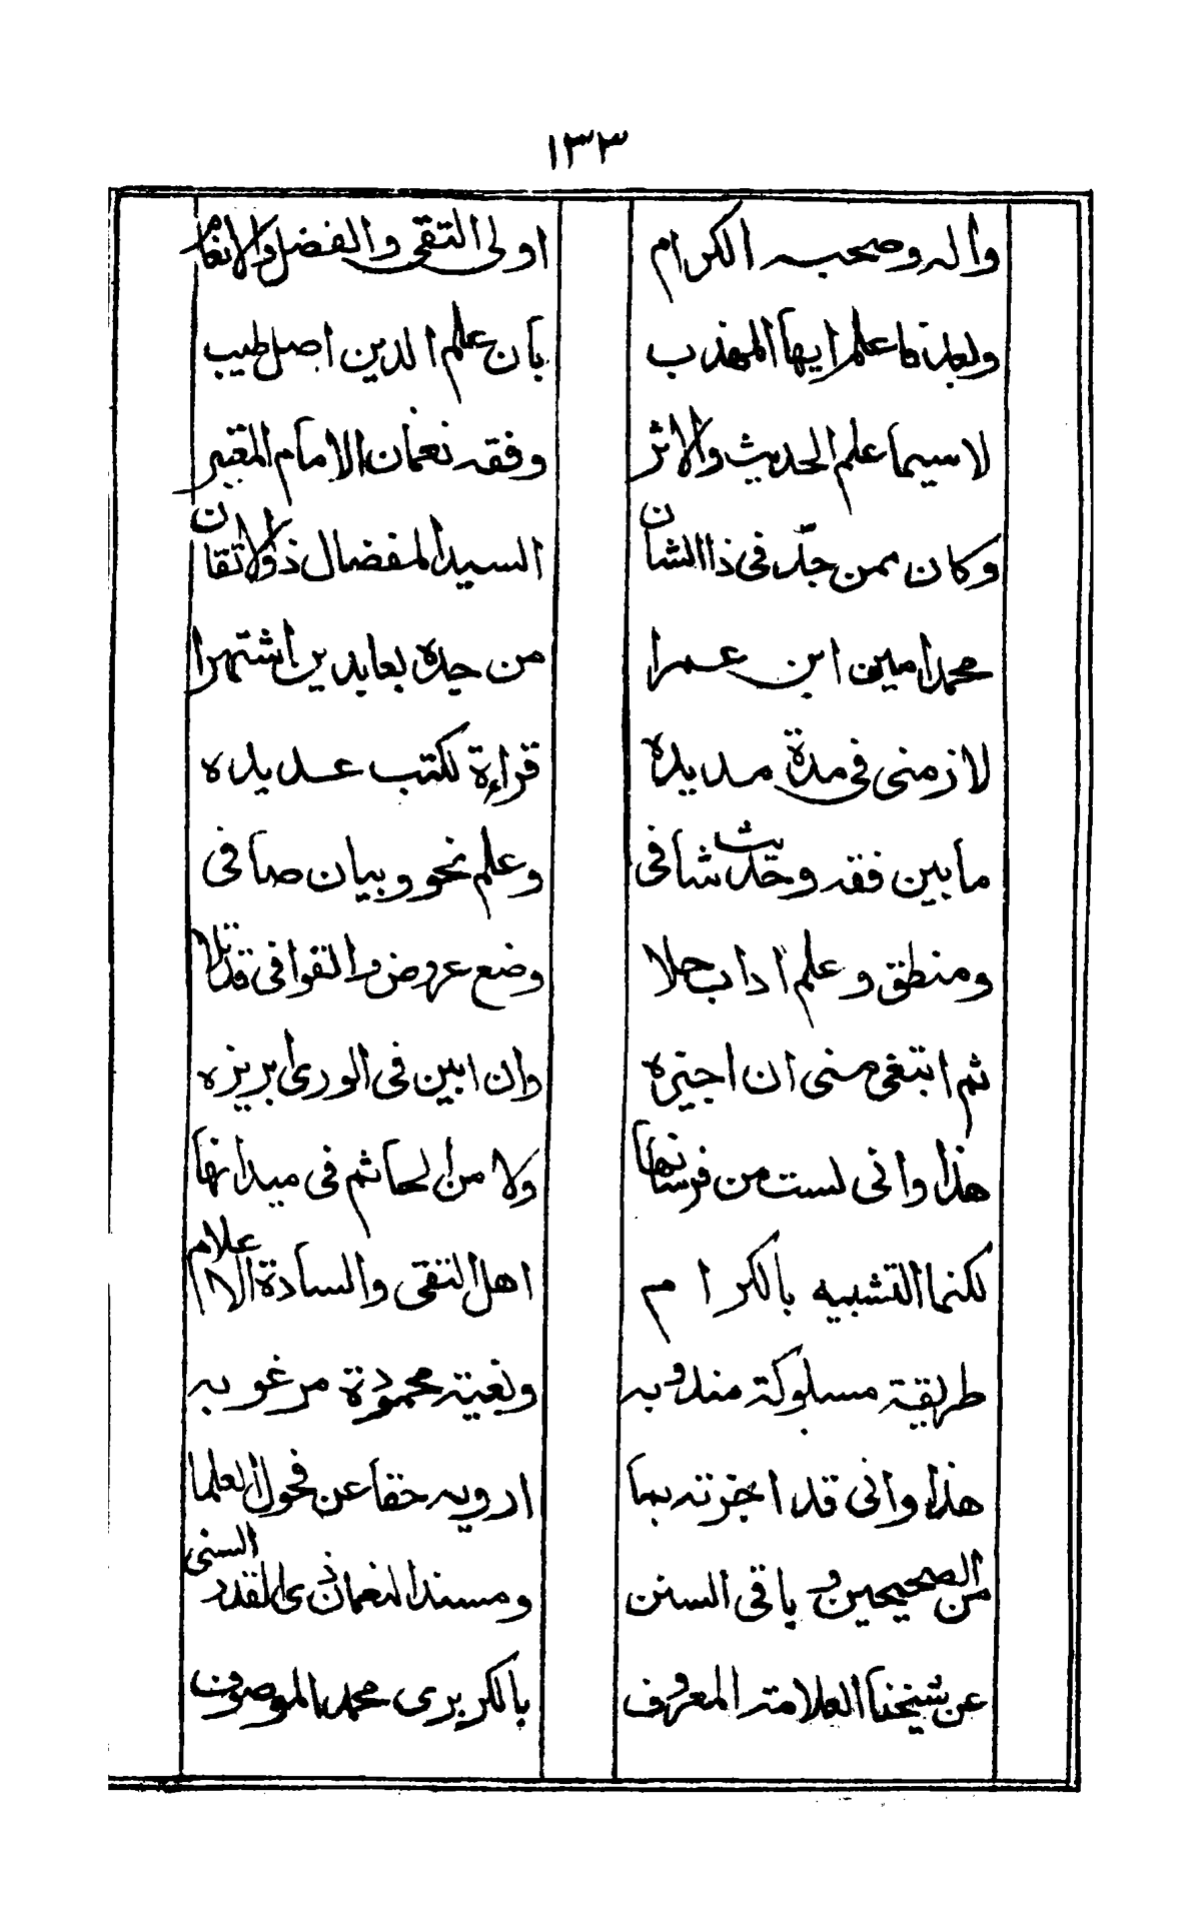 ١٣٣
واله وصحبه الكرام اولى التقى والفضل والانعام
وبعد فاعلم ايها المهذب بان علم الدين اصل طيب
لا سيما علم الحديث والاثر وفقه نعمان الامام المعتبر
وكان ممن جدّ فى ذا الشان السيد المفضال ذو الاتقان
محمد امين ابن عمرا من جده بعابدين اشتهرا
لازمنى فى مدة مديده قراءة لكتب عديده
ما بين فقه وحديث شافى وعلم نحو وبيان صافى
ومنطق وعلم اداب جلا وضع عروض والقوافى قد تلا
ثم ابتغى منى ان اجيزه وان ابين فى الورى ابريزه
هذا وانى لست من فرسانها ولا من لحاثم فى ميدانها
لكنما التشبيه بالكرام اهل التقى والسادة الاعلام
طريقة مسلوكة مندوبه وبغية محمودة مرغوبه
هذا وانى قد اجزته بما ارويه حقا عن فحول العلما
من الصحيحين وباقى السنن ومسند النعمان ذى القدر السنى
عن شيخنا العلامة المعروف بالكزبرى محمد الموصوف